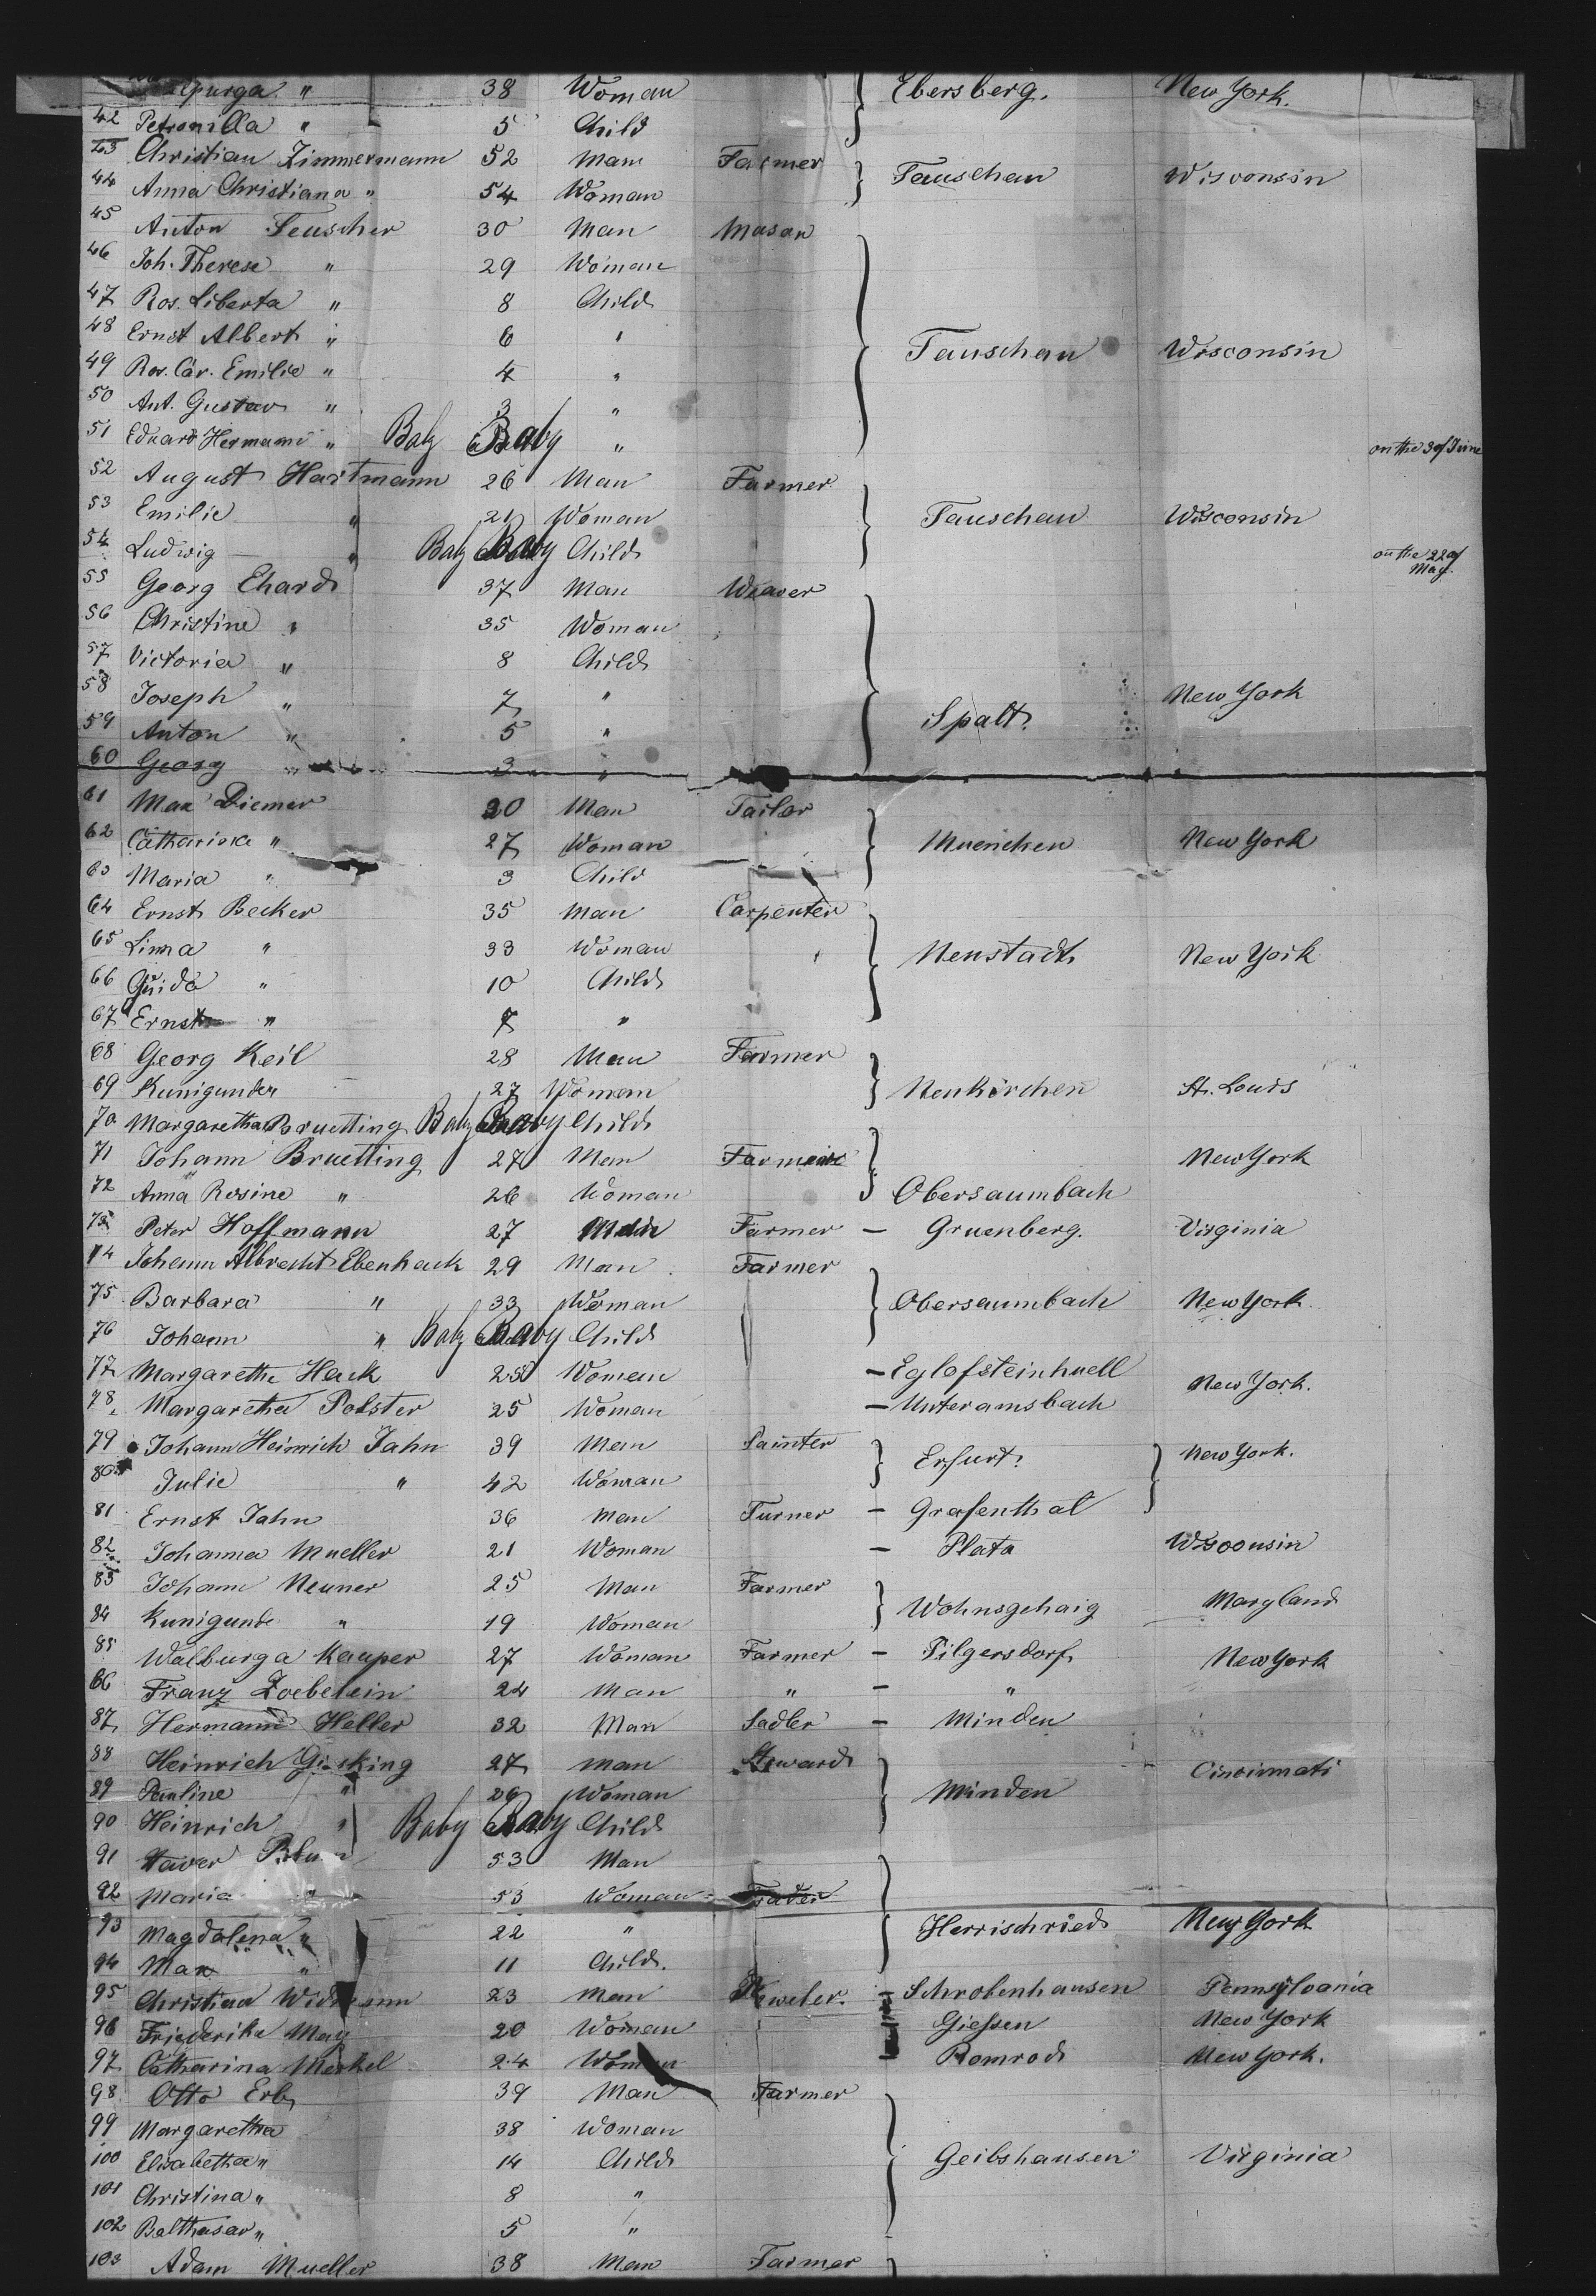 38 Woman Ebersberg. New York.
42 Petronilla " 5 Child
43 Christian Zimmermann 52 Man Farmer
Tauschau Wisconsin
44 Anna Christiana " 54 Woman
45 Anton Teuscher 30 Man Mason
46 Joh. Therese " 29 Woman
47 Ros. Liberta " 8 Child
48 Ernst Albert " 6 "
Tauschau Wisconsin
49 Ros. Car. Emilie " 4 "
50 Ant. Gustav " 3 "
51 Eduard Hermann " Baby Baby " on the 3 of June
52 August Hartmann 26 Man Farmer
53 Emilie " 21 Woman Tauschau Wisconsin
54 Ludwig " Baby Baby Child on the 22 of May.
55 Georg Ehard 37 Man Weaver
56 Christine " 35 Woman
57 Victoria " 8 Child
58 Joseph " 7 " New York
Spalt.
59 Anton " 5 "
60 Georg " 3 "
61 Max Diemer 20 Man Tailor
62 Catharina " 27 Woman Muenchen New York
63 Maria " 3 Child
64 Ernst Becker 35 Man Carpenter
65 Linna " 33 Woman Neustadt New York
66 Guido " 10 Child
67 Ernst " 7 "
68 Georg Keil 28 Man Farmer
69 Kunigunder 27 Woman Neukirchen St. Louis
70 Margaretha Bruetting Baby Baby Child
71 Johann Bruetting 27 Man Farmer New York
72 Anna Rosine " 26 Woman Obersaumbach
73 Peter Hoffmann 27 Man Farmer - Gruenberg. Virginia
74 Johann Albrecht Ebenhack 29 Man Farmer
75 Barbara " 33 Woman Obersaumbach New York
76 Johann " Baby Baby Child
77 Margarethe Hack 25 Woman - Eglofsteinhuell
New York.
78 Margaretha Polster 25 Woman - Unteramsbach
79 Johann Heinrich Jahn 39 Man Painter
Erfurt. New York.
80 Julie " 42 Woman
81 Ernst Jahn 36 Man Turner - Grafenthal
82 Johanna Mueller 21 Woman - Plata Wisconsin
83 Johann Neuner 25 Man Farmer
Wohnsgehaig Maryland
84 Kunigunde " 19 Woman
85 Walburga Kauper 27 Woman Farmer - Pilgersdorf New York
86 Franz Zoebelein 24 Man " - "
87 Hermann Heller 32 Man Sadler - Minden
88 Heinrich Gieking 27 Man Steward
Minden Cincinnati
89 Pauline " 26 Woman
90 Heinrich " Baby Baby Child
91 Xaver 53 Man
92 Maria " 53 Woman
93 Magdalena " 22 " Herrischried New York
94 Max " 11 Child.
95 Christina 23 Man - Schrobenhausen Pennsylvania
96 Friederike May 20 Woman - Giessen New York
97 Catharina Merkel 24 Woman - Romrod New York.
98 Otto Erb 39 Man Farmer
99 Margaretha 38 Woman
100 Elisabetha " 14 Child Geibshausen Virginia
101 Christina " 8 "
102 Balthasar " 5 "
103 Adam Mueller 38 Man Farmer